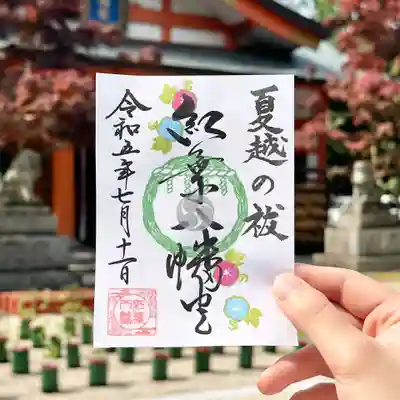 夏越の祓
紅葉八幡宮
令和五年七月十一日